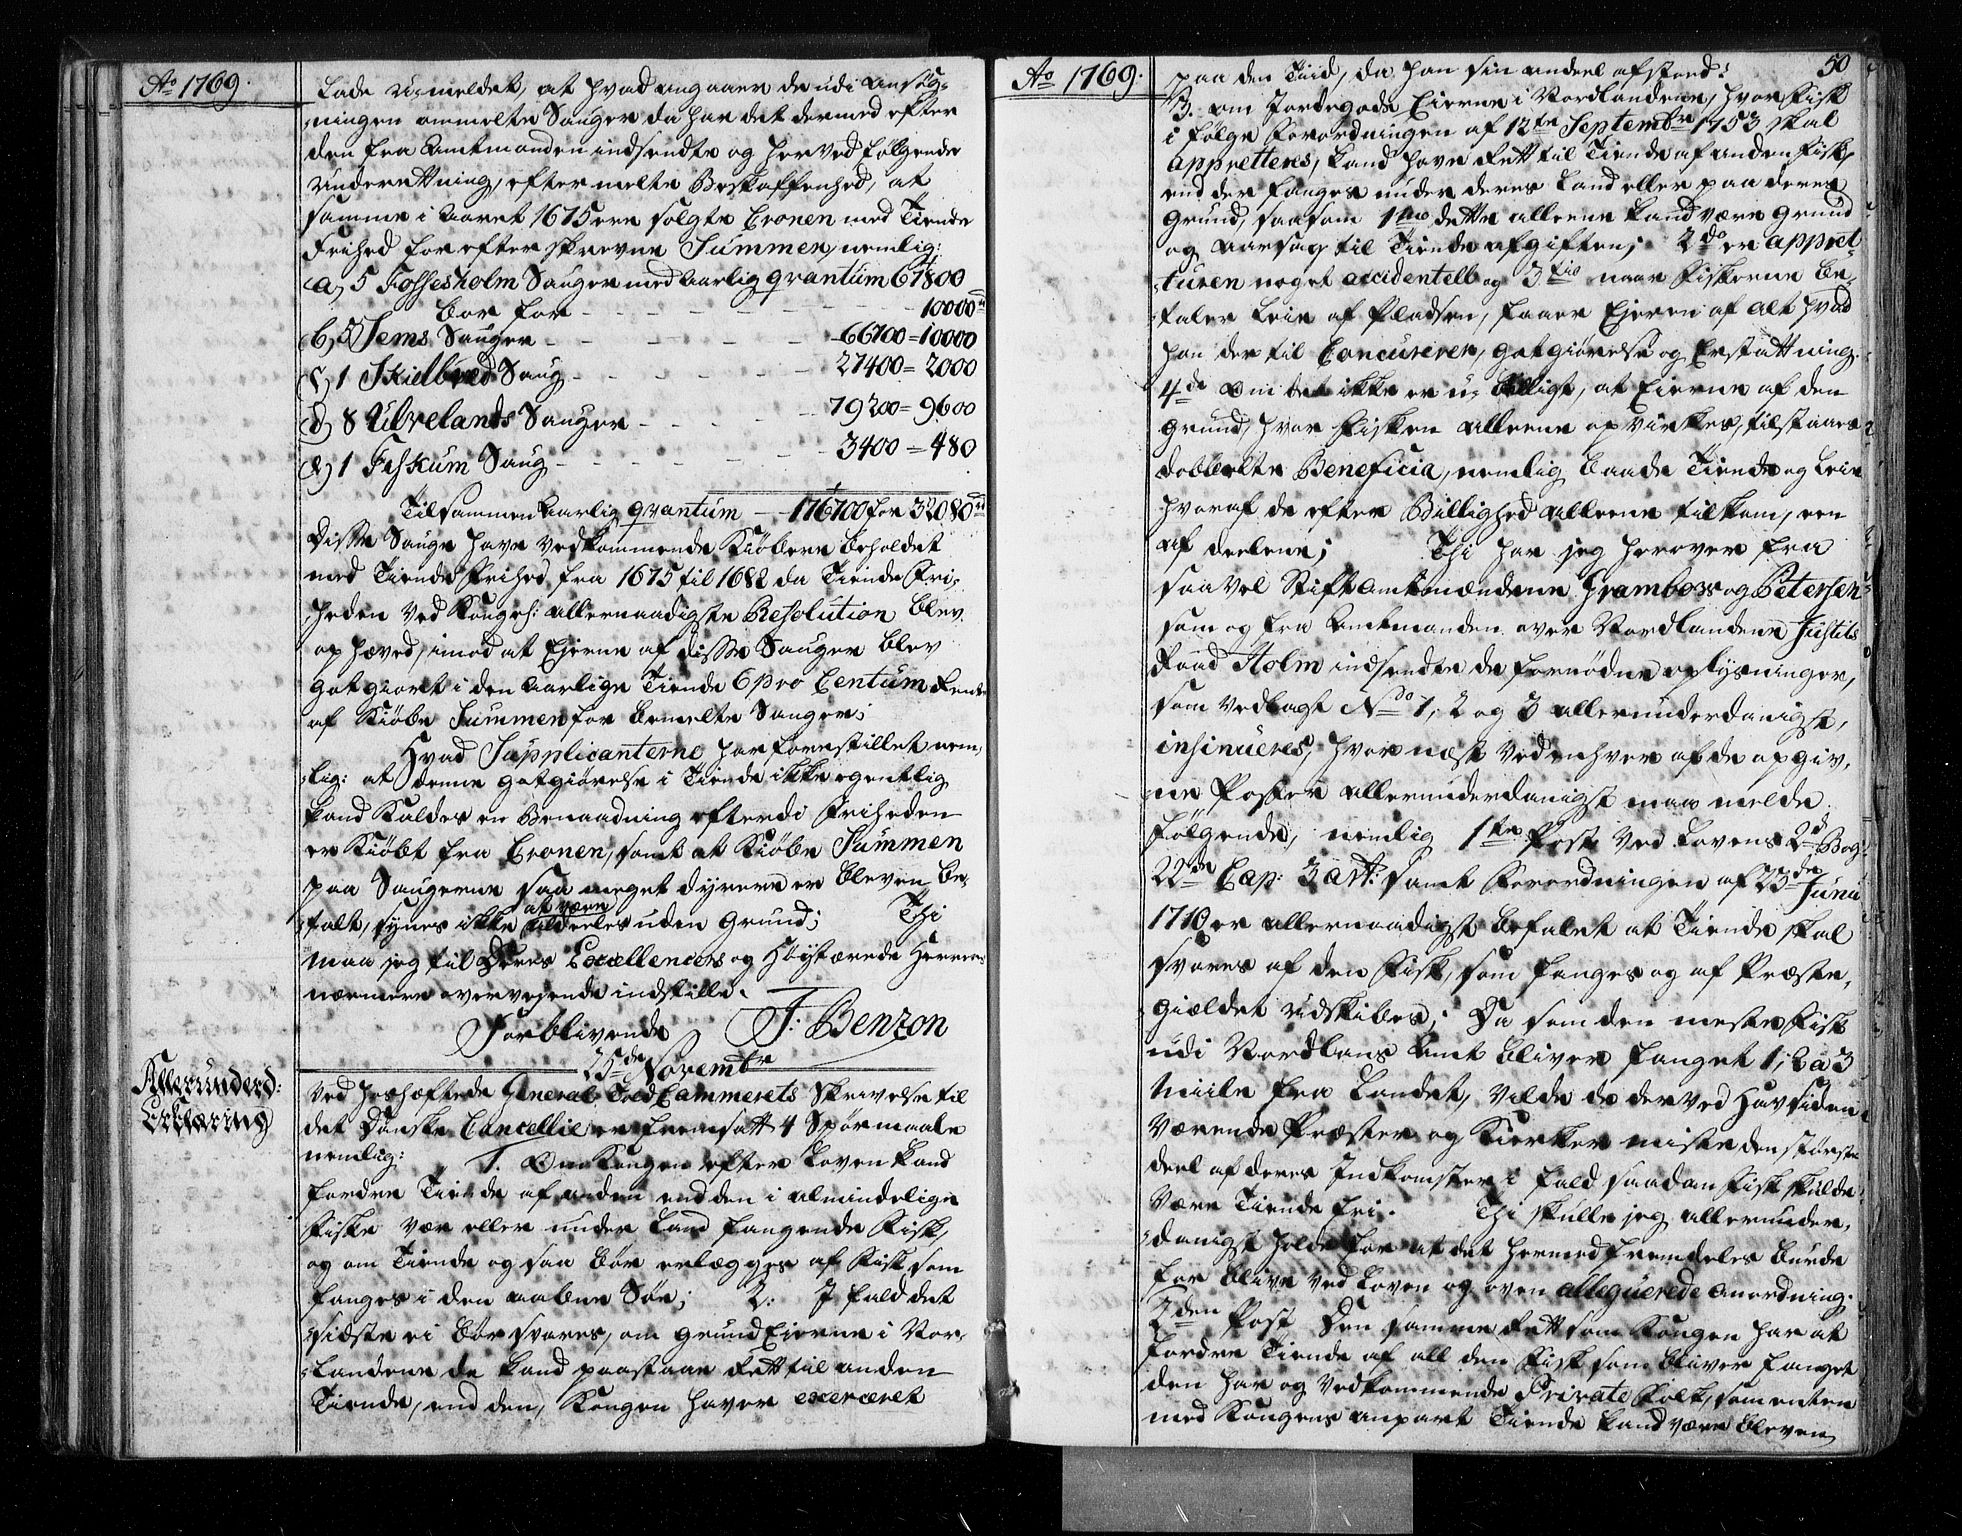 Ao 1769.
Lade u-meldet, at hvad angaaer de udi ansøg-
-ningen ommelte Sauger da har det dermed efter
den fra Amtmanden indsendte og herved følgende
Underrettning, eftermelte Beskaffenhed, at
samme i Aaret 1675 ere solgte Cronen med Tiende
Frihed for efterskrevne Summer, nemlig:
a, 5 Fossesholm Sauger med Aarlig qvantum 67800
bor for - - - - - 10000
b, 5 Sems Sauger - - - - 66700 = 10000
c, 1 Skielbred Saug - - - - 27400 = 2000
d, 8 Ulvelands Sauger - - - 79200 = 9600
e, 1 Fiskum Saug - - - - - 3400 = 480
Tilsammen Aarlig qvantum - - 176700 for 32080
Disse Sauge have Vedkommende Kiøbere beholdet
med Tiende Frihed fra 1675 til 1682 da Tiende Fri-
heden ved Kongel: allernaadigste Resolution blev
ophæved, imod at Ejerne af disse Sauger blev
godgiort i den Aarlige Tiende 6 pro Centum Rente
af Kiøbe Summen for bemelte Sauger;
Hvad Supplicanterne har forestillet nem-
-lig: at denne godgiørelse i Tiende ikke egentlig
kand kaldes en Benaadning efterdi Friheden
er Kiøbt fra Cronen, samt at Kiøbe Summen
paa Saugerne saa meget dyrere er bleven be-
at være
-talt, synes ikke aldeeles uden Grund; Thi
maa jeg til Deres Excellencers og Høystærede Herrers
nærmere overveyende indstille.
Forblivende J: Benzon
25de Novembr
Allerunderd:
Erklæring
Ved hoshæftede General Told Cammerets Skrivelse til
det Danske Cancellie er fremsatt 4 Spørmaale
nemlig: 1. Om Kongen efter Loven kand
fordre Tiende af anden end den i almindelige
Fiske Vær eller under Land fangende Fisk,
og om Tiende og saa bør erlægges af Fisk som
fanges i den aabne Søe; 2: I fald det
sidste ei bør svares, om Grund Eierne i Nor-
-landene da kand paastaae Rett til anden
Tiende, end den, Kongen haver exerceret
Ao 1769.
50
paa den Tiid, da han sin andeel afstoed:
3. om Jordegods Eierne i Nordlandene, hvor Fisk
i følge Forordningen af 12te Septembr 1753 skal
appretteres, kand have Rett til Tiende af anden Fisk,
end der fanges under deres Land eller paa deres
Grund, saasom 1mo dette alleene kand være Grund
og Aarsag til Tiende afgiften; 2do er appret-
-turen noget accidentelt og 3tio naar Fiskerne be-
-taler Leie af Pladsen, faaer Ejeren af alt hvad
han der til Concurerer, godgiørelse og Erstattning.
4de Om det ikke er u-billigt, at Eierne af den
Grund, hvor Fisken alleene opvirkes, tilstaaes
dobbelte Beneficia, nemlig baade Tiende og Leie
hvoraf de efter Billighed alleene tilkom, een
af deelene; Thi har jeg herover fra
saavel Stiftamtmændene Grambow og Petersen
som og fra Amtmanden over Nordlandene Justits
Raad Holm indsendte de fornødne oplysninger,
som vedlagt No 1, 2 og 3 allerunderdanigst,
insinueres, hvor næst ved enhver af de opgiv-
ne Poster allerunderdanigst maa melde
følgende, nemlig 1te Post ved Lovens 2d Bog
22de Cap: 3 art. samt Forordningen af 23de Junii
1710 er allernaadigst befalet at Tiende skal
svares af den Fisk, som fanges og af Præste-
Gieldet udskibes; Da som den meste Fisk
udi Nordlans Amt bliver fanget 1, 2 a 3
Miile fra Landet, vilde de derved Havsiden
Værende Præster og Kierker miste den største
deel af deres Indkomster i fald saadan Fisk skulde
være Tiende fri. Thi skulle jeg allerunder-
-danigst holde for at det hermed fremdeles burde
for blive ved Loven og oven alleguerede Anordning.
2den Post Den samme Rett som Kongen har at
fordre Tiende af all den Fisk som bliver fanget
den har og vedkommende Private Folk, som enten
med Kongens anpart Tiende kand være bleven